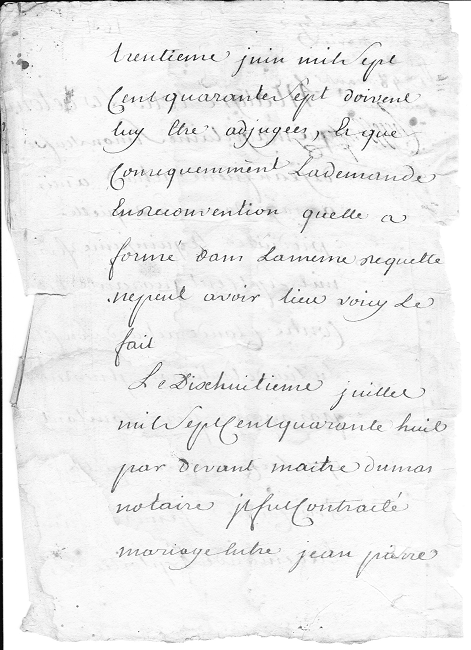 trentieme juin mil sept
Cent quarante sept doivent
luy Etre adjugées, Et que
Consequemment La demande
En reconvention quelle a
forme dans La meme requette
ne peut avoir lieu voicy Le
fait
Le Dixhuitieme juillet
mil Sept Cent quarante huit
par devant maitre dumas
notaire jl fut Contracté
mariage Entre jean pierre